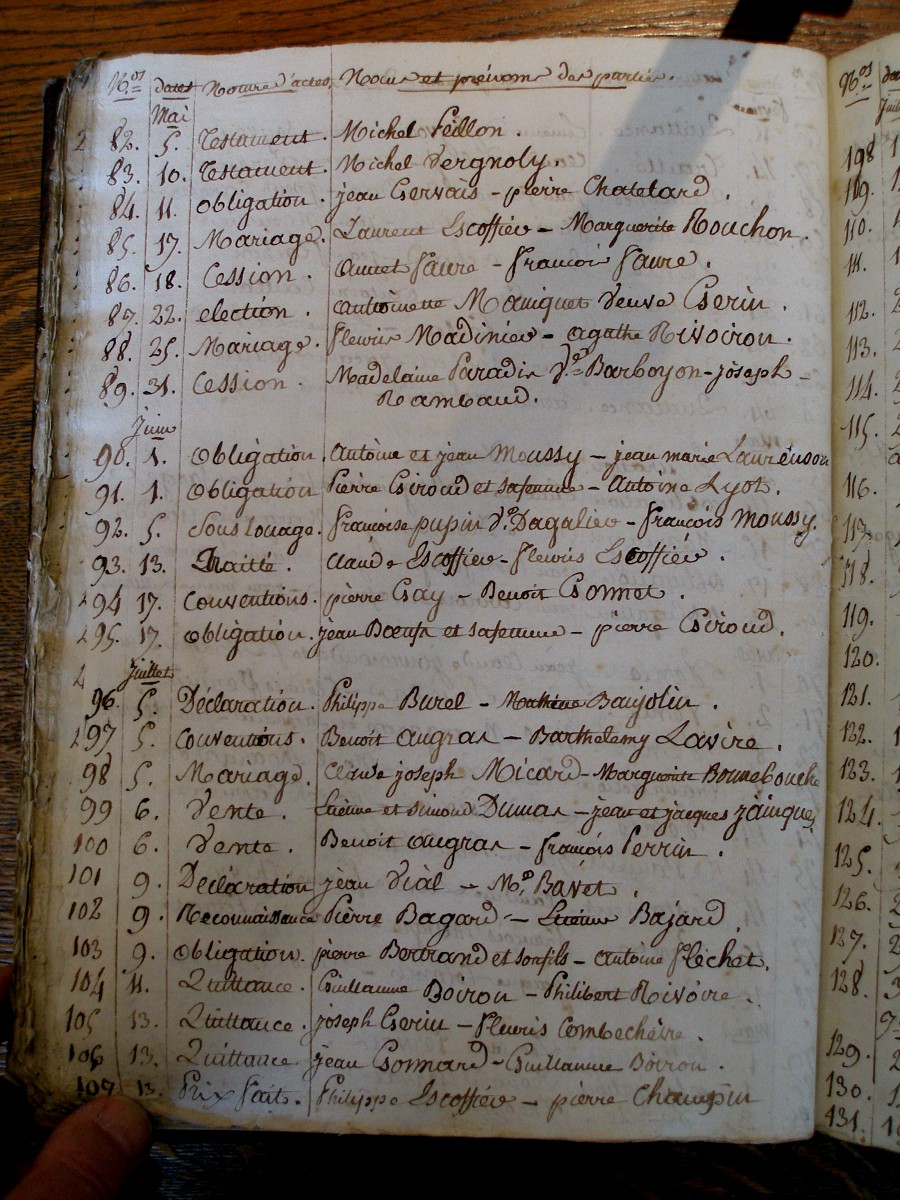 N.os dates Nature d'actes, Noms et prénoms des parties.
Mai
82. 5. Testament. Michel Feillon.
83. 10. Testament. Michel Vergnoly.
84. 11. obligation. jean Gervais - pierre Chatelard.
85. 17. Mariage. Laurent Escoffier - Marguerite Rouchon.
86. 18. Cession. Annet Faure - francois Faure.
87. 22. election. antoinette Maniquet veuve Gerin.
88. 25. Mariage. fleuris Madinier - agathe Rivoiron.
89. 31. Cession. Madelaine Paradis v.e Barboyon - joseph -
Rambaud.
Juin
90. 1. obligation. antoine et jean Moussy - jean marie Laurenson
91. 1. obligation Pierre Giroud et safemme - antoine Lyot.
92. 5. Sous louage. francoise pupin v.e Dagalier - francois Moussy.
93. 13. Traité. Claude Escoffier - fleuris Escoffier.
94 17. Conventions. pierre Gay - Benoit Gonnet.
95. 17. obligation. jean Bœuf et safemme - pierre Giroud.
Juillet
96. 5. Déclaration. Philippe Burel - Baujolin.
97 5. Conventions. Benoit augras - Barthelemy Lavire.
98 5. Mariage. Claude joseph Micard - Marguerite Bonnebouche
99 6. Vente. Etienne et Simond Dumas - jean et jacques
100 6. Vente. Benoit augras - francois Perrin.
101 9. Declaration jean Vial - Bavet.
102 9. Reconnaissance Pierre Bagard - Etienne Bajard
103 9. obligation. pierre Bertrand et son fils - antoine fléchet.
104 11. Quittance. Guillaume Boiron - Philibert Rivoire.
105 13. Quittance. joseph Gerin - fleuris Combechère.
106 13. Quittance jean Gonnard - Guillaume Boiron.
107 13. Prix fait. Philippe Escoffier - pierre Champin
N.os
198
109.
110.
111.
112.
113.
114.
115.
116.
117.
118.
119.
120.
121.
122.
123.
124.
125.
126.
127.
128.
129.
130.
131.